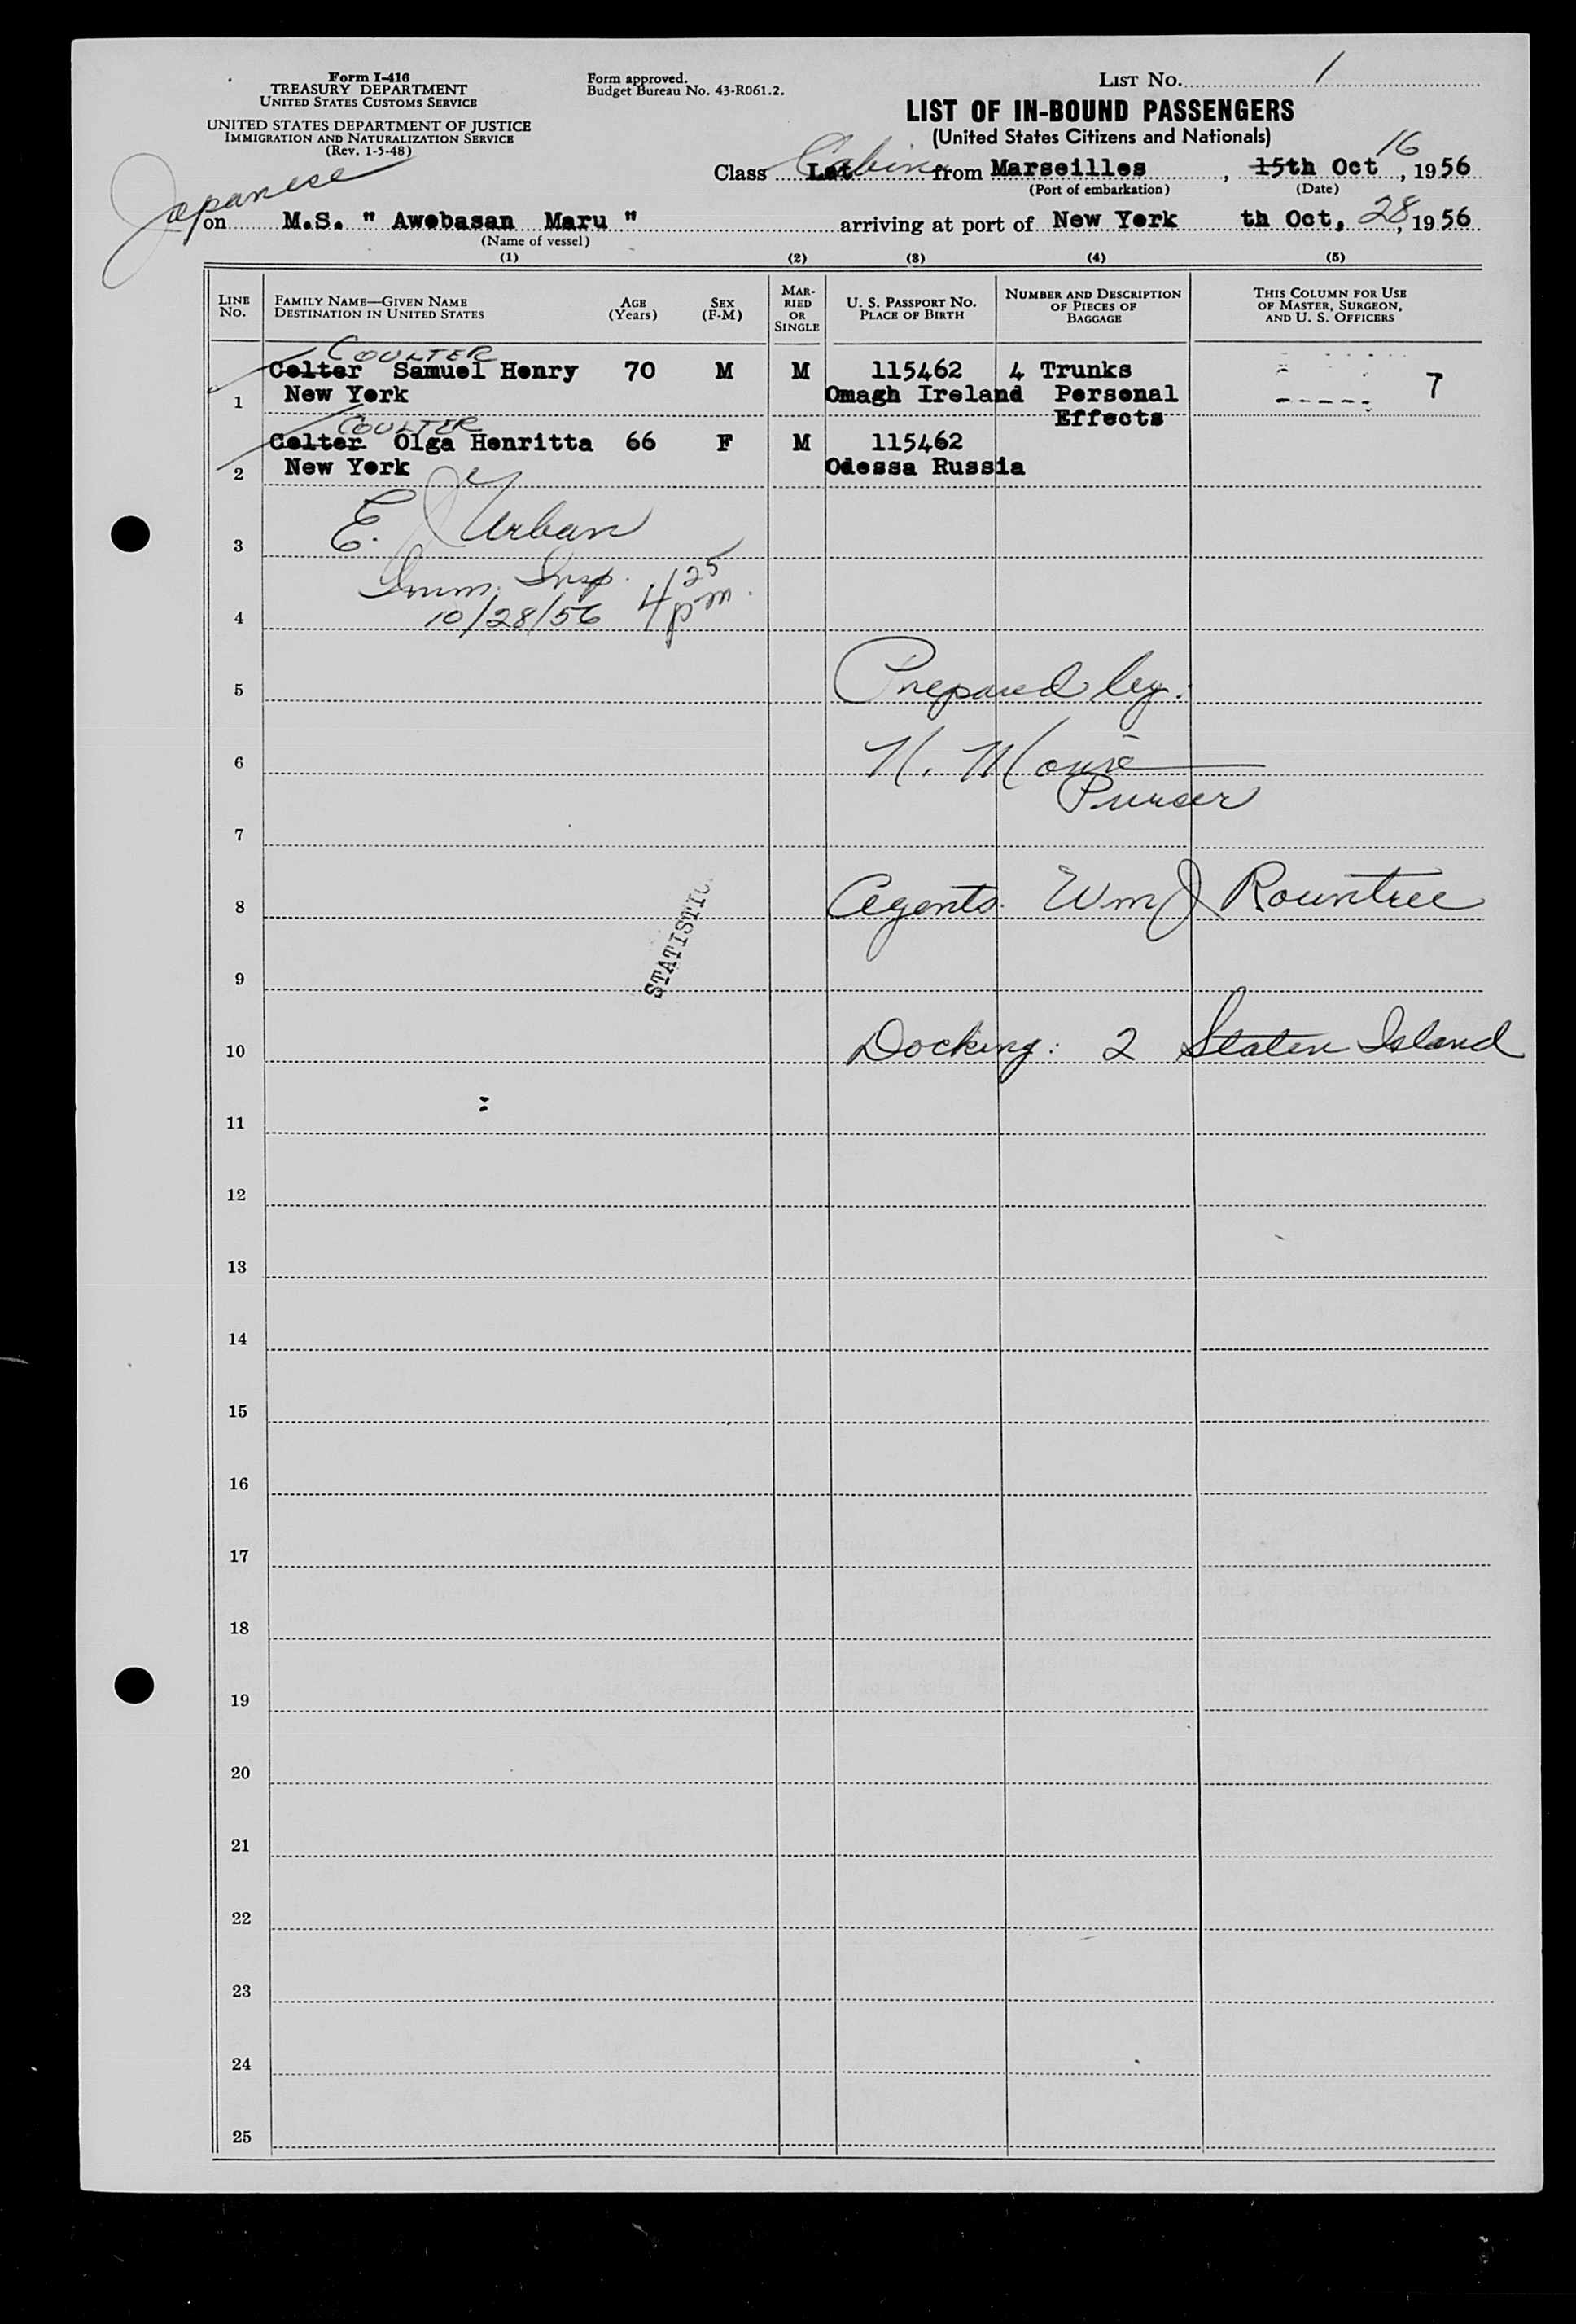 Form I-416
TREASURY DEPARTMENT
UNITED STATES CUSTOMS SERVICE
UNITED STATES DEPARTMENT OF JUSTICE
IMMIGRATION AND NATURALIZATION SERVICE
(Rev. 1-5-48)
Form approved.
Budget Bureau No. 43-R061.2.
LIST NO. 1
LIST OF IN-BOUND PASSENGERS
(United States Citizens and Nationals)
Class Cabin from Marseilles, 15th Oct 16, 1956
(Port of embarkation) (Date)
Japanese
on M.S. " Awobasan Maru " arriving at port of New York th Oct, 28, 1956
(Name of vessel)
(1) (2) (3) (4) (5)
LINE NO.
FAMILY NAME—GIVEN NAME
DESTINATION IN UNITED STATES
AGE (Years)
SEX (F-M)
MARRIED OR SINGLE
U. S. PASSPORT NO.
PLACE OF BIRTH
NUMBER AND DESCRIPTION OF PIECES OF BAGGAGE
THIS COLUMN FOR USE OF MASTER, SURGEON, AND U. S. OFFICERS
COULTER
Colter Samuel Henry 70 M M 115462 4 Trunks
1 New York Omagh Ireland Personal 7
Effects
COULTER
Colter Olga Henritta 66 F M 115462
2 New York Odessa Russia
E. J Urban
3
Imm. Insp. 4 25 pm.
10/28/56
4
Prepared by:
5
6
Purser
7
Agents Wm J Rountree
8
STATISTIC
9
Docking: 2 Staten Island
10
11
12
13
14
15
16
17
18
19
20
21
22
23
24
25